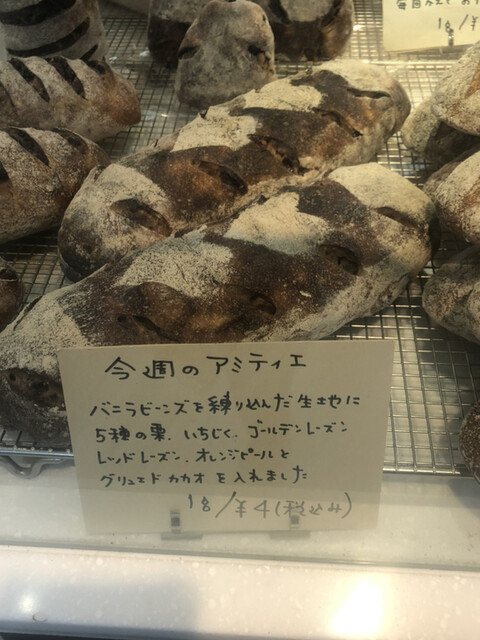 毎
1g/¥
今週のアミティエ
バニラビーンズを練り込んだ生地に
5種の栗、いちじく、ゴールデンレーズン
レッドレーズン、オレンジピールと
グリュエドカカオを入れました
1g/¥4(税込み)